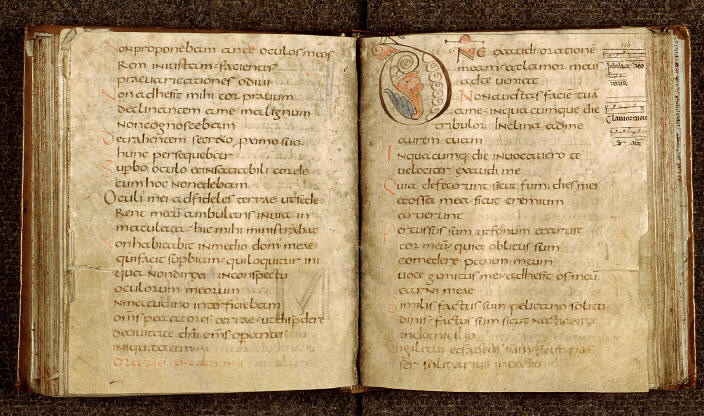 Nonproponebam ante oculos meos
Rem iniustam facientes
praeuaricationes odiui
Non adhesit mihi cor prauum
declinantem a me malignum
noncognoscebam
Detrahentem secreto proximo suo
hunc persequebar
Supbo oculo & insatiabili corde
cum hoc nonedebam
Oculi mei adfideles terrae utsede
Rent mecū ambulans inuia in
maculata hic mihi ministrabat
Non habitabit inmedio dom meae
quifacit supbiam quiloquitur ini
qua Nondirex inconspectu
oculorum meorum
Inmatutino interficiebam
om̄s peccatores terrae utdispderē
deciuitate dn̄i om̄s operantes
iniquitatem
Oratio pauperis
DNE exaudi orationē
meam etclamor meus
adte ueniat
Nonauertas faciē tuā
ame inqua cumque die
tribulor Inclina adme
aurem tuam
Inquacumq; die inuocauero te
uelociter exaudi me
Quia defecerunt sicut fumus dies mei
etossa mea sicut cremium
aruerunt
Percussus sum utfenum etaruit
cor meum quia oblitus sum
comedere panem meum
uoce gemitus mei adhesit os meū
carni meae
Similis factus sum pelicano solitu
dinis factus sum sicut nocticorax
indomicilio
Uigilaui etfactus sum sicut pas
ser solitarius intecto
Iubilate deo
Clamor meus